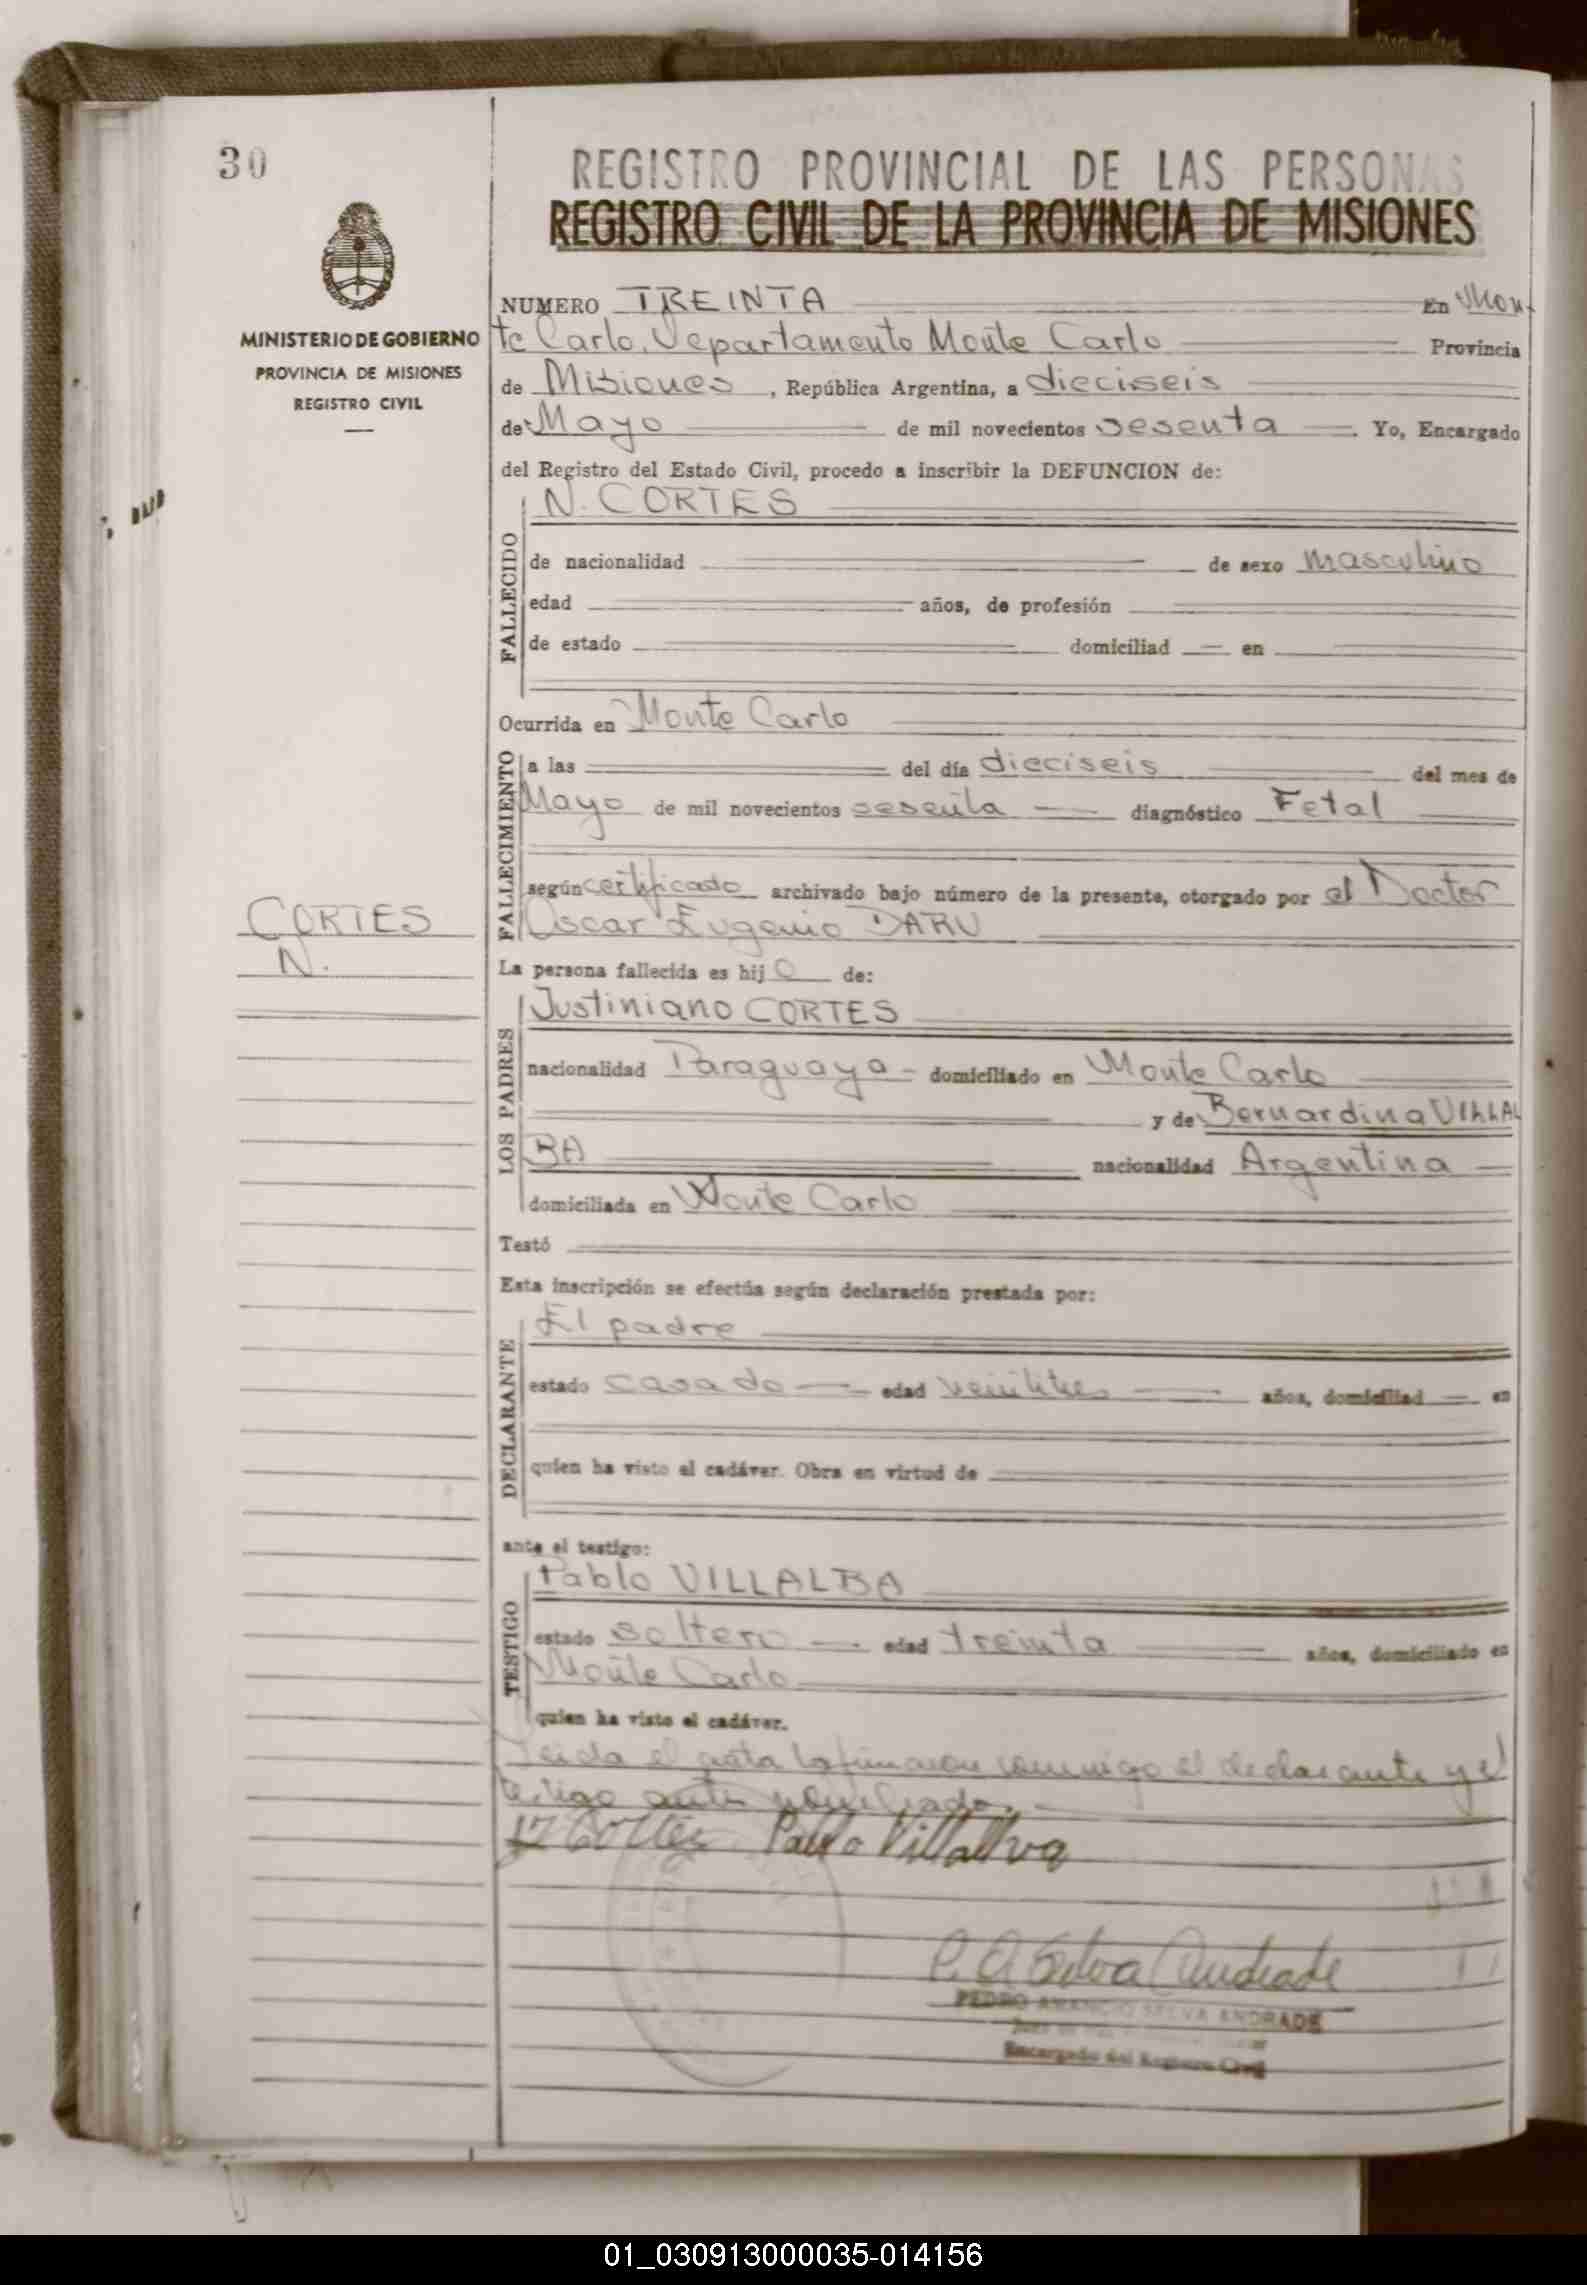 30
REGISTRO PROVINCIAL DE LAS PERSONAS
REGISTRO CIVIL DE LA PROVINCIA DE MISIONES
MINISTERIO DE GOBIERNO
PROVINCIA DE MISIONES
REGISTRO CIVIL
NUMERO TREINTA En Mon-
te Carlo, Departamento Monte Carlo Provincia
de Misiones, República Argentina, a dieciseis
de Mayo de mil novecientos sesenta Yo, Encargado
del Registro del Estado Civil, procedo a inscribir la DEFUNCION de:
N. CORTES
FALLECIDO
de nacionalidad de sexo masculino
edad años, de profesión
de estado domiciliad en
Ocurrida en Monte Carlo
FALLECIMIENTO
a las del día dieciseis del mes de
Mayo de mil novecientos sesenta diagnóstico Fetal
según certificado archivado bajo número de la presente, otorgado por el Doctor
Oscar Eugenio DARU
CORTES
N.
La persona fallecida es hijo de:
LOS PADRES
Justiniano CORTES
nacionalidad Paraguaya domiciliado en Monte Carlo
y de Bernardina VILLAL
BA nacionalidad Argentina
domiciliada en Monte Carlo
Testó
Esta inscripción se efectúa según declaración prestada por:
DECLARANTE
El padre
estado casado edad veintitres años, domiciliad en
quien ha visto el cadáver. Obra en virtud de
ante el testigo:
TESTIGO
Pablo VILLALBA
estado soltero edad treinta años, domiciliado en
Monte Carlo
quien ha visto el cadáver.
Leida el acta la firmaron conmigo el declarante y el
testigo antes nombrado.
Cortes Pablo Villalva
P. A Selva Andrade
PEDRO AMANCIO SELVA ANDRADE
Encargado del Registro Civil
01_030913000035-014156